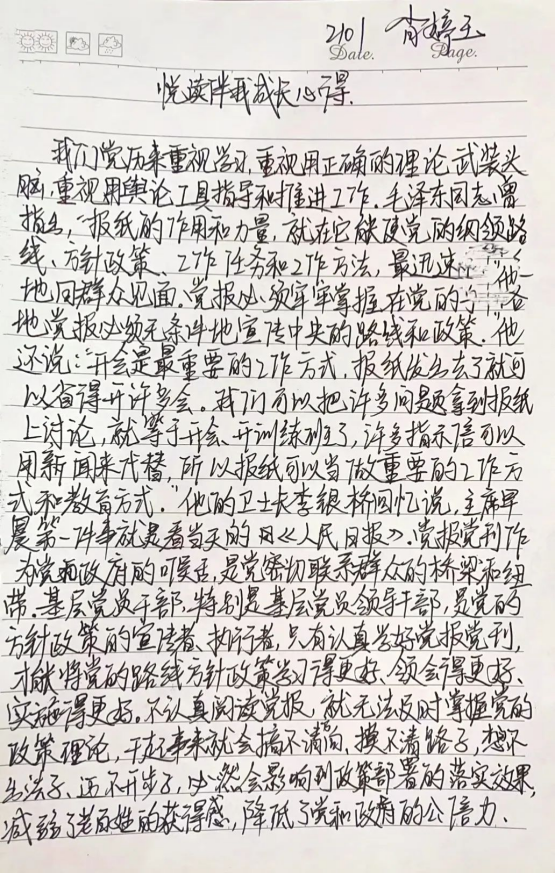 2101 肖婷玉
Date. Page.
悦读伴我成长心得.
我们党历来重视学习,重视用正确的理论武装头
脑,重视用舆论工具指导和推进工作.毛泽东同志曾
指出,"报纸的作用和力量,就在它能使党的纲领路
线、方针政策、工作任务和工作方法,最迅速
地同群众见面.党报必须牢牢掌握在党的手 "他一
地党报必须无条件地宣传中央的路线和政策."他
还说:"开会是最重要的工作方式,报纸发出去了就可
以省得开许多会。我们可以把许多问题拿到报纸
上讨论,就等于开会、开训练班了,许多指示信可以
用新闻来代替,所以报纸可以当做重要的工作方
式和教育方式."他的卫士长李银桥回忆说,主席早
晨第一件事就是看当天的《人民日报》.党报党刊作
为党和政府的喉舌,是党密切联系群众的桥梁和纽
带.基层党员干部,特别是基层党员领导干部,是党的
方针政策的宣传者、执行者,只有认真学好党报党刊,
才能将党的路线方针政策学习得更好、领会得更好、
实施得更好。不认真阅读党报,就无法及时掌握党的
政策理论,干起事来就会搞不清方向、摸不清路子,想不
出法子、迈不开步子,必然会影响到政策部署的落实效果,
减弱了老百姓的获得感,降低了党和政府的公信力.